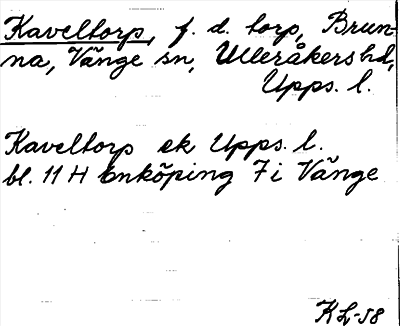 Kaveltorp, f. d. torp, Brun-
na, Vänge sn, Ulleråkers hd,
Upps. l.
Kaveltorp ek Upps. l.
bl. 11 H Enköping 7 i Vänge
KL-58